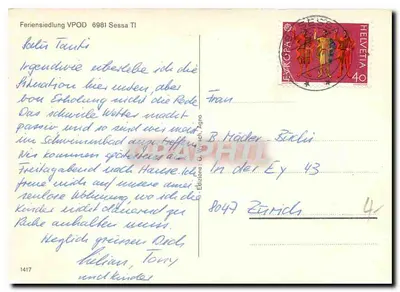 Feriensiedlung VPOD 6981 Sessa TI
Irgendwie überlebe ich die
Situation hier unten, aber
von Erholung nicht die Rede.
Das schwüle Wetter macht
passiv und so sind wir meist
im Schwimmbad
Wir kommen
Freitagabend nach Hause. Ich
freue mich auf unsere
Wohnung, wo ich die
Kinder nicht dauernd zur
Ruhe anhalten muss.
Herzlich grüssen Dich
und Kinder
1417
EUROPA
HELVETIA
40
Frau
B.
In der Ey 43
8047 Zürich